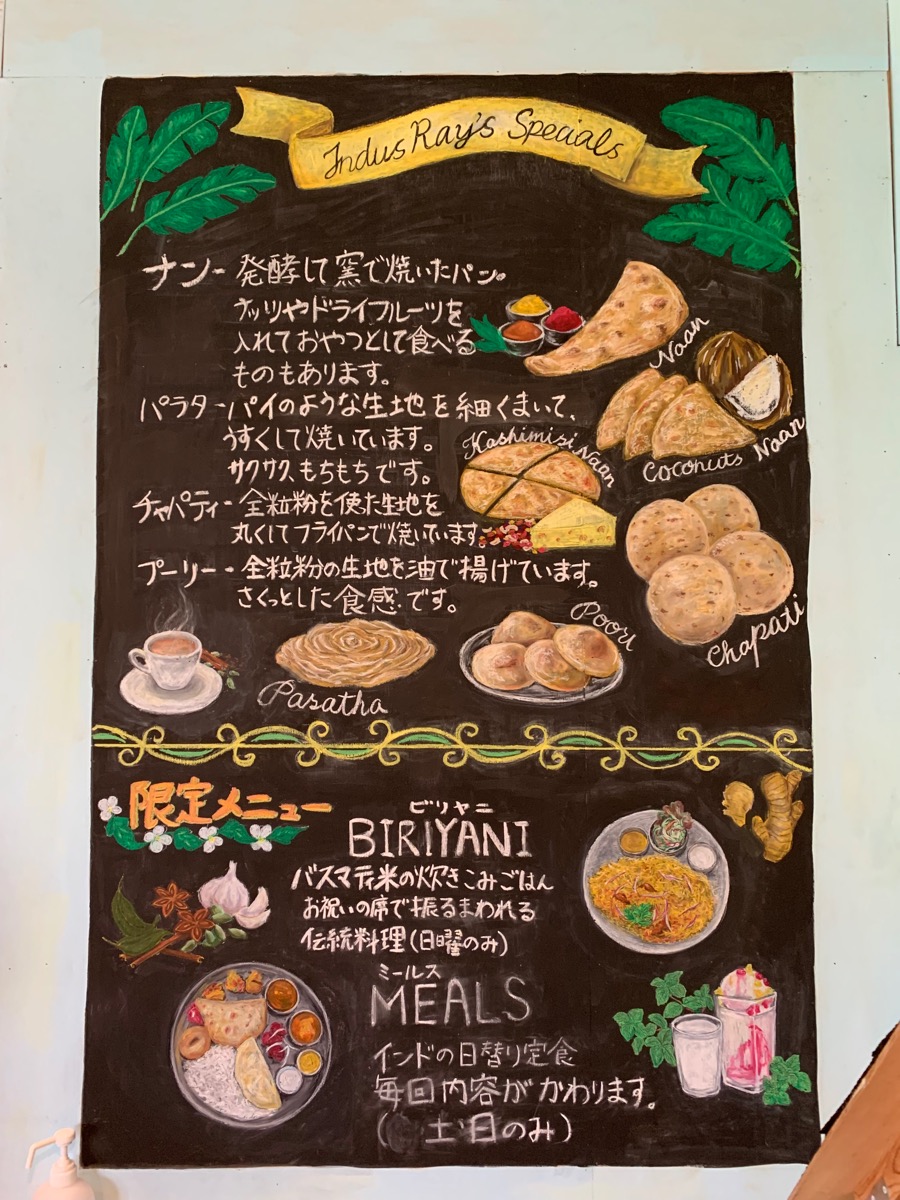 Indus Ray's Specials
ナン- 発酵して窯で焼いたパン。
ナッツやドライフルーツを
入れておやつとして食べる
ものもあります。
パラタ-パイのような生地を細くまいて、
うすくして焼いています。
サクサクもちもちです。
チャパティ- 全粒粉を使た生地を
丸くしてフライパンで焼いています。
プーリー- 全粒粉の生地を油で揚げています。
さくっとした食感.です。
Naan
Coconuts Naan
Kashimisi Naan
Chapati
Poori
Pasatha
限定メニュー
ビリヤニ
BIRIYANI
バスマティ米の炊きこみごはん
お祝いの席で振るまわれる
伝統料理(日曜のみ)
ミールス
MEALS
インドの日替り定食
毎回内容がかわります。
(土・日のみ)